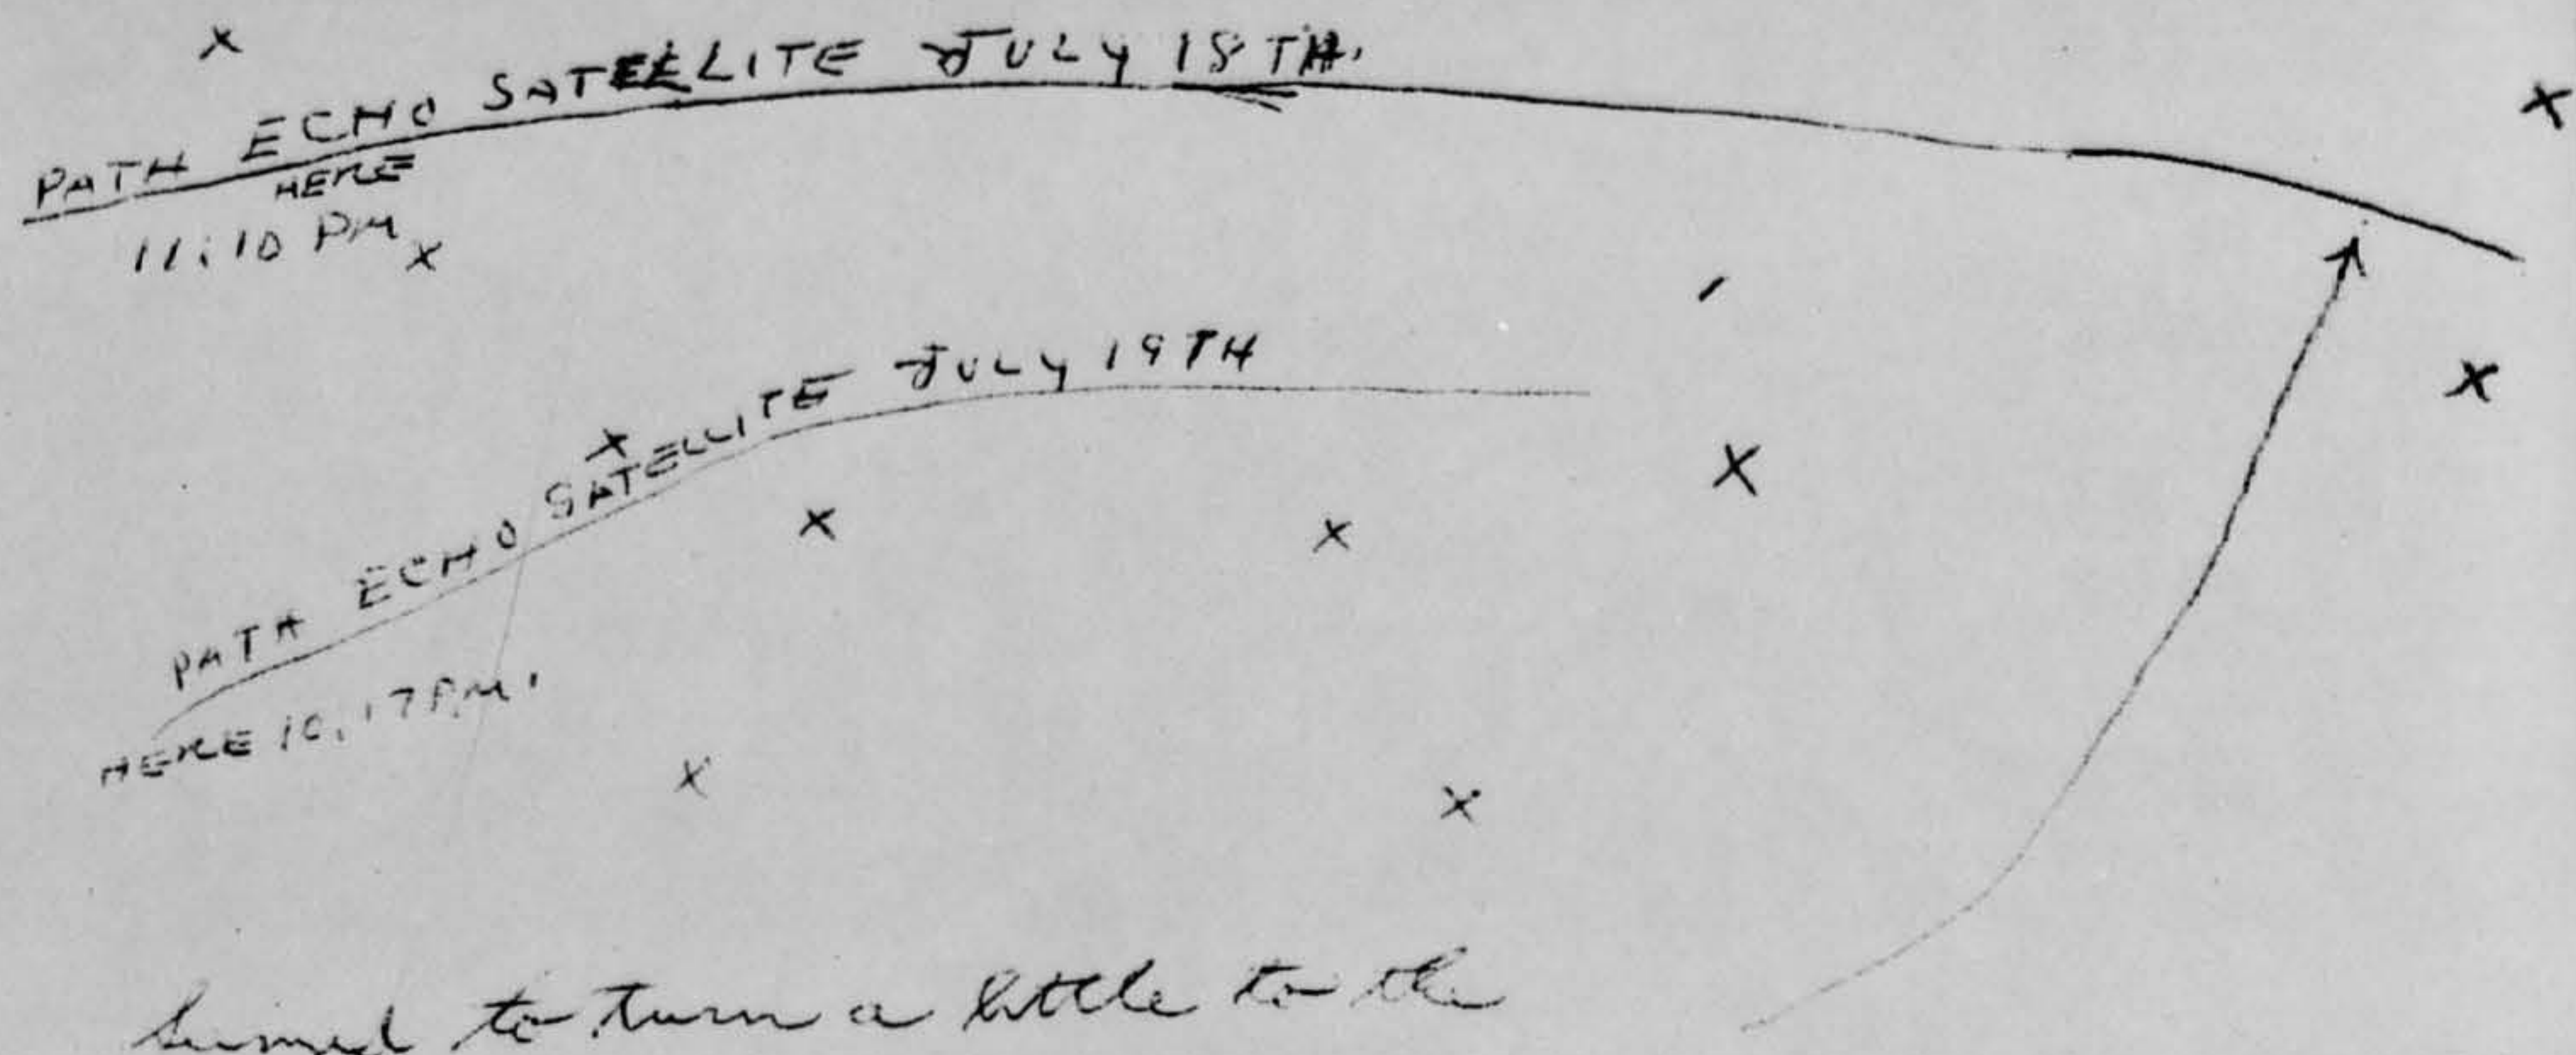 PATH ECHO SATELLITE JULY 18TH.
HERE
11:10 PM
PATH ECHO SATELLITE JULY 19TH
HERE 10.17 P.M.
seemed to turn a little to the